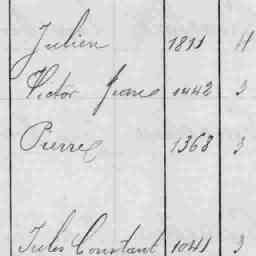 Julien 1811 H
Victor Jean 1442 3
Pierre 1368 3
Jules Constant 1041 3